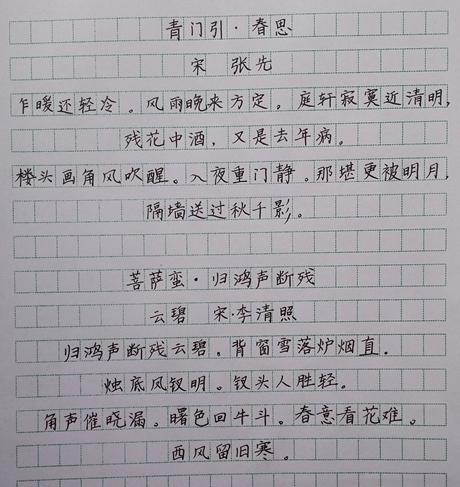 青门引·春思
宋 张先
乍暖还轻冷。风雨晚来方定。庭轩寂寞近清明，
残花中酒，又是去年病。
楼头画角风吹醒。入夜重门静。那堪更被明月，
隔墙送过秋千影。
菩萨蛮·归鸿声断残
云碧 宋·李清照
归鸿声断残云碧。背窗雪落炉烟直。
烛底凤钗明。钗头人胜轻。
角声催晓漏。曙色回牛斗。春意看花难。
西风留旧寒。